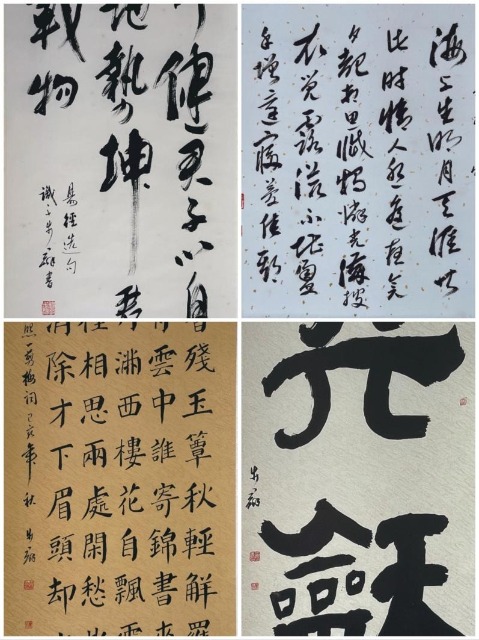 健君子以自
地勢坤君
載物
易經選句
海上生明月天涯共
此時情人怨遙夜竟
夕起相思滅燭憐光滿披
衣覺露滋不堪盈
手贈還寢夢佳期
香殘玉簟秋輕解羅
雲中誰寄錦書來
月滿西樓花自飄零
相思兩處閑愁
消除才下眉頭却
照一剪梅詞己亥年秋
龢